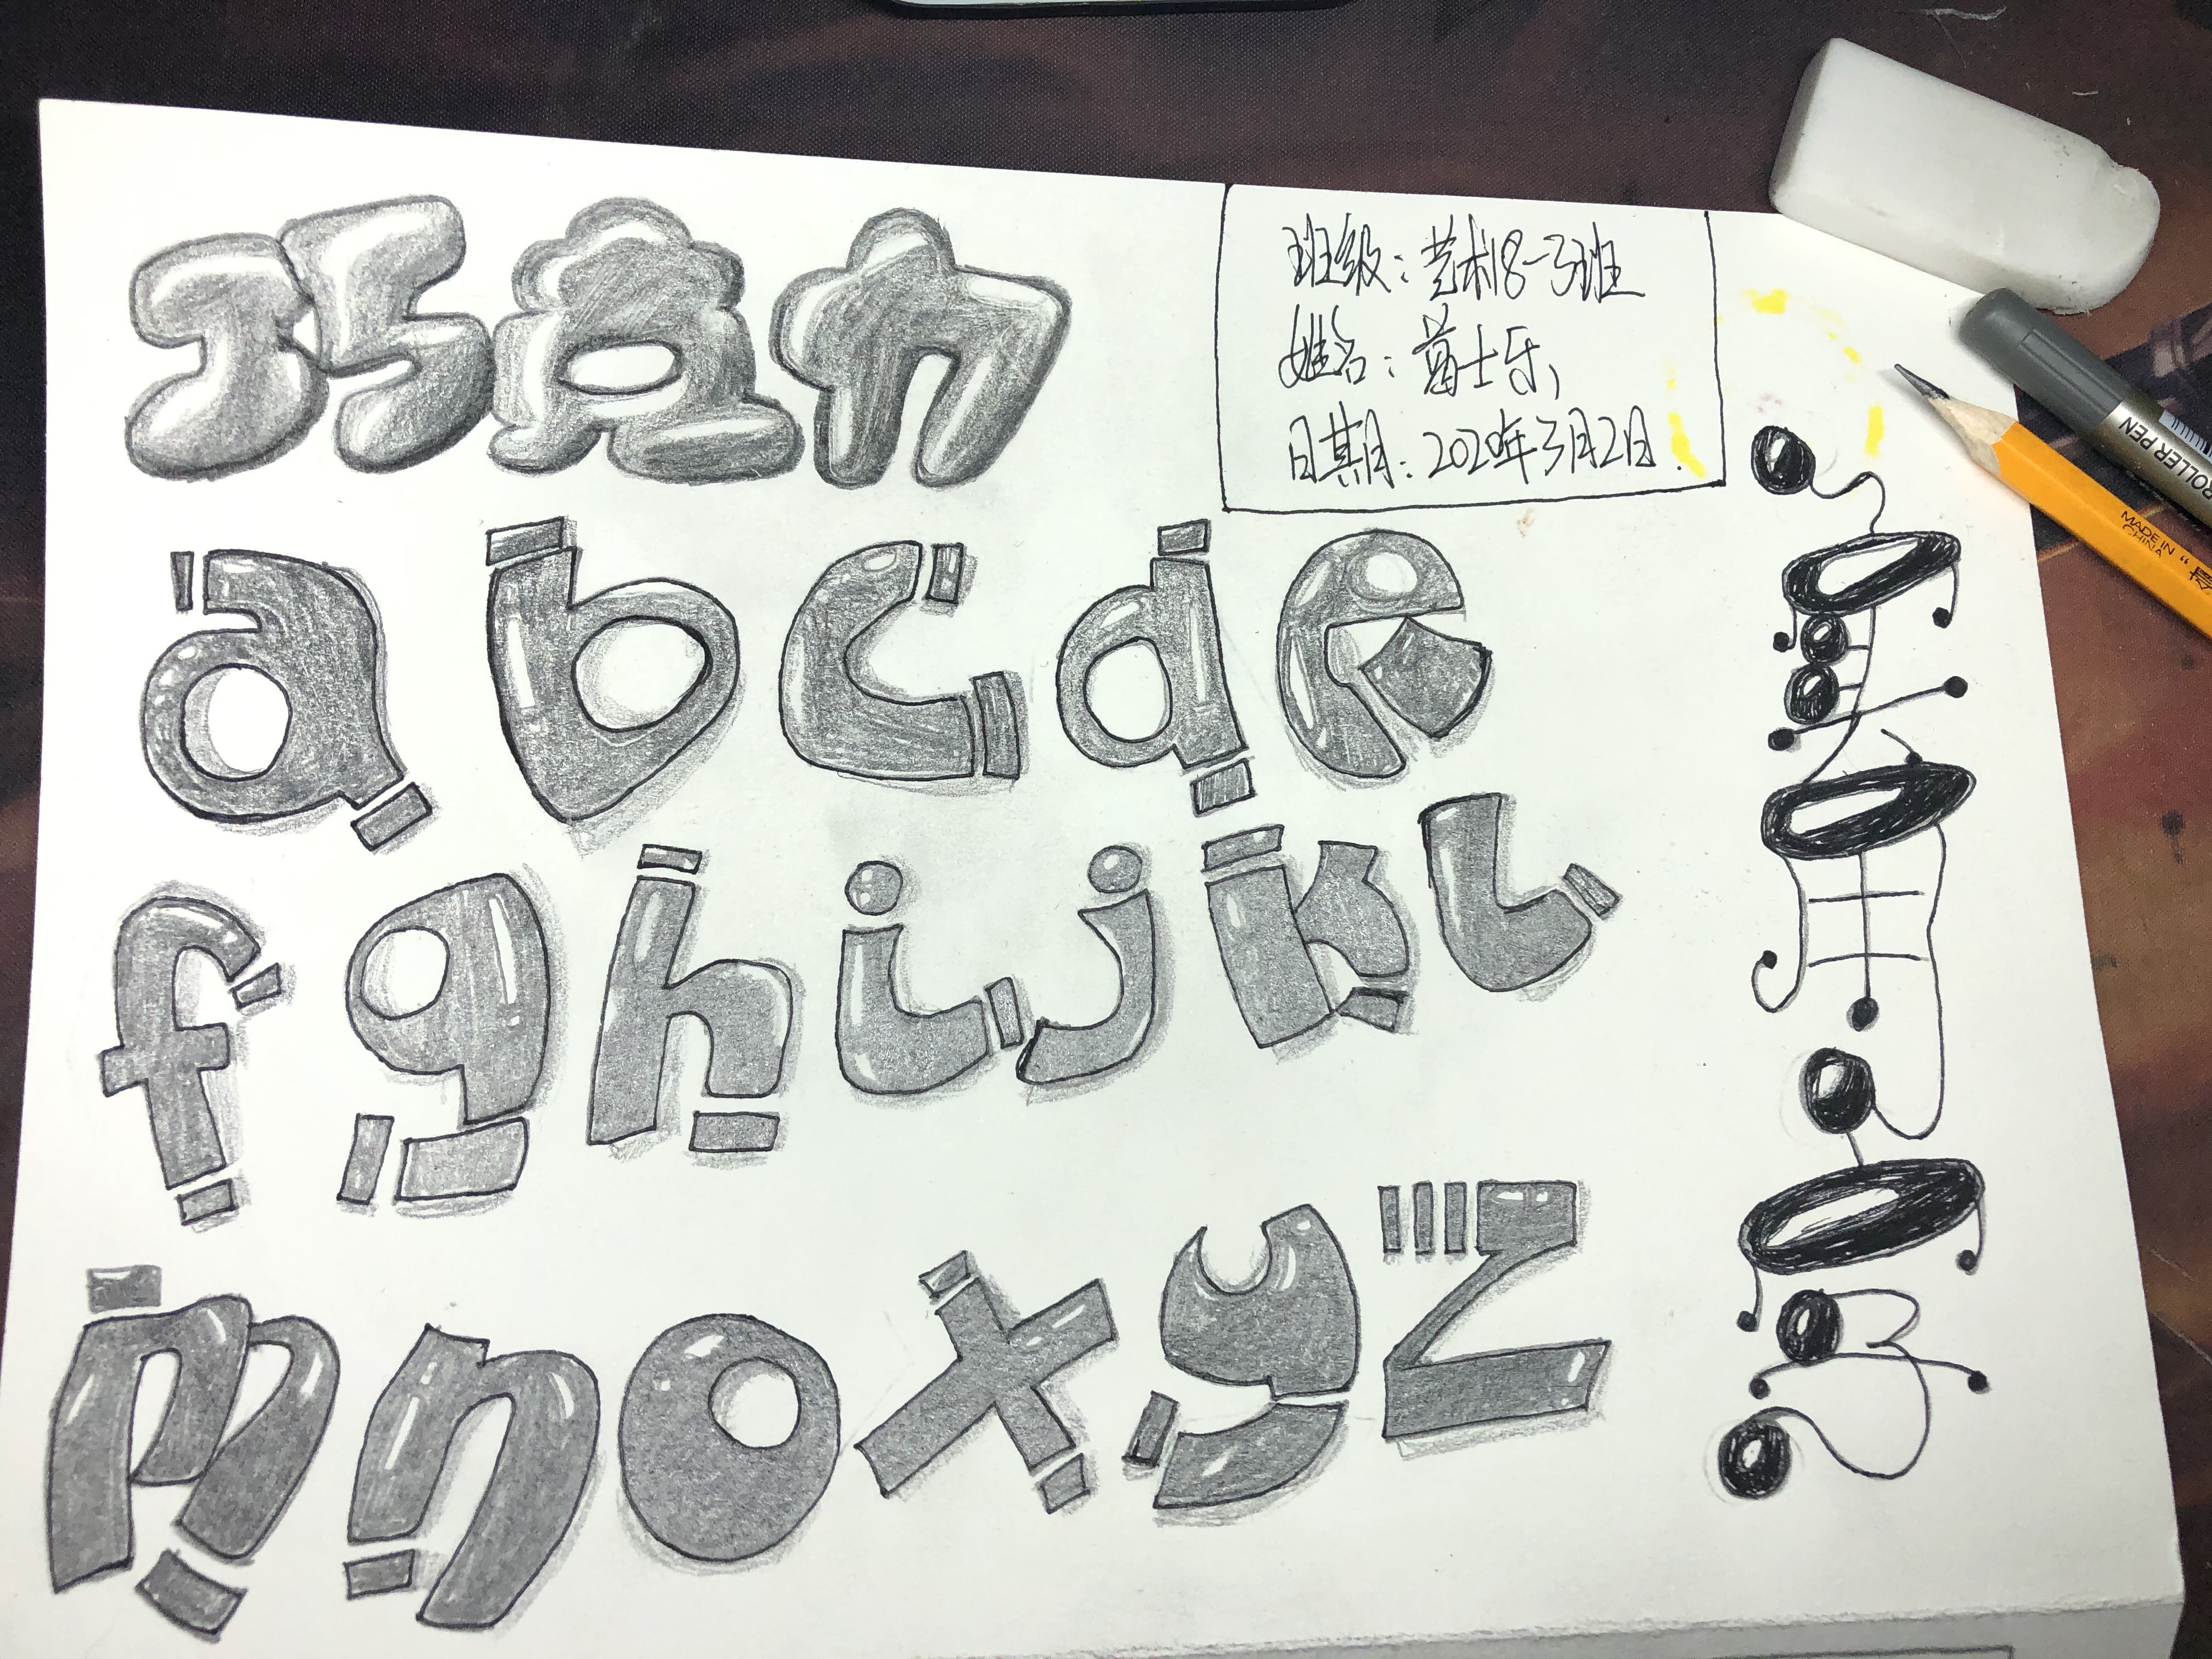 巧克力
班级：艺术18-3班
姓名：士乐
日期：2020年3月2日.
a b c d e
f g h i j k l
m n o x y z
ROLLER PEN
MADE IN CHINA